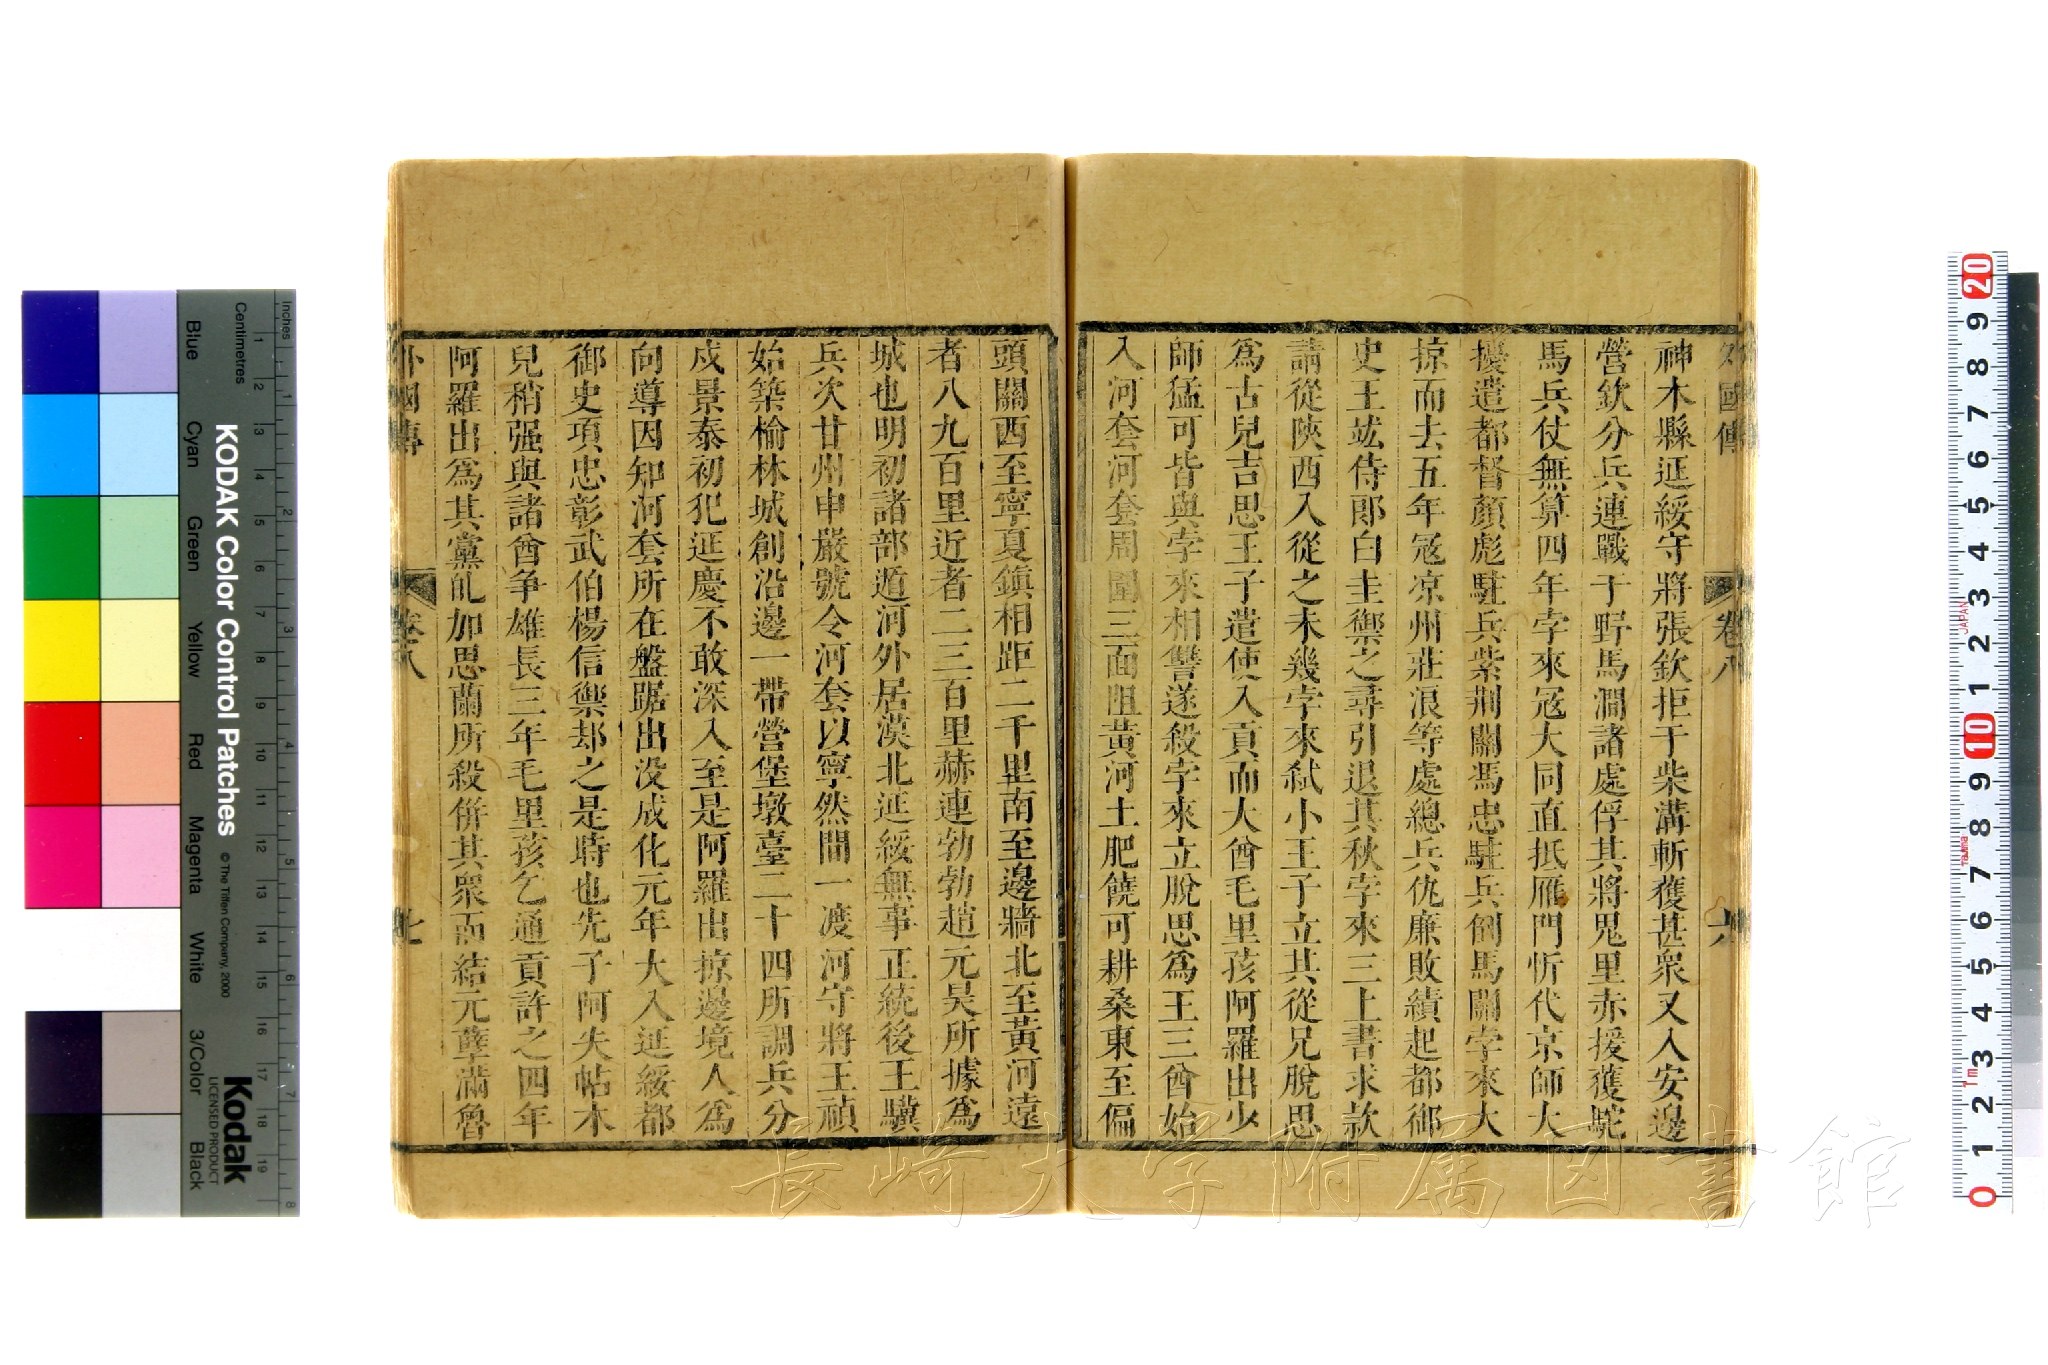 外國傳 卷八 六
神木縣延綏守將張欽拒于柴溝斬獲甚衆又入安邊
營欽分兵連戰于野馬澗諸處俘其將鬼里赤援獲駝
馬兵仗無算四年孛來冦大同直抵雁門忻代京師大
擾遣都督顏彪駐兵紫荆關馮忠駐兵倒馬關孛來大
掠而去五年冦凉州莊浪等處總兵仇廉敗績起都御
史王竑侍郞白圭禦之尋引退其秋孛來三上書求款
請從陜西入從之未幾孛來弑小王子立其從兄脫思
爲古兒吉思王子遣使入貢而大酋毛里孩阿羅出少
師猛可皆與孛來相讐遂殺孛來立脫思爲王三酋始
入河套河套周圍三面阻黃河土肥饒可耕桑東至偏
頭關西至寧夏鎮相距二千里南至邊牆北至黃河遠
者八九百里近者二三百里赫連勃勃趙元昊所據爲
城也明初諸部遁河外居漠北延綏無事正統後王驥
兵次甘州申嚴號令河套以寧然間一渡河守將王禎
始築榆林城創沿邊一帶營堡墩臺二十四所調兵分
戍景泰初犯延慶不敢深入至是阿羅出掠邊境人爲
向導因知河套所在盤踞出没成化元年大入延綏都
御史項忠彰武伯楊信禦却之是時也先子阿失帖木
兒稍强與諸酋争雄長三年毛里孩乞通貢許之四年
阿羅出爲其黨癿加思蘭所殺併其衆而結元孽滿魯
外國傳 卷八 七
KODAK Color Control Patches
© The Tiffen Company, 2000
Kodak
LICENSED PRODUCT
Inches
Centimetres
Blue Cyan Green Yellow Red Magenta White 3/Color Black
1 2 3 4 5 6 7 8
1 2 3 4 5 6 7 8 9 10 11 12 13 14 15 16 17 18 19
20 9 8 7 6 5 4 3 2 1 10 9 8 7 6 5 4 3 2 1 0
JAPAN
1m
長崎大学附属図書館